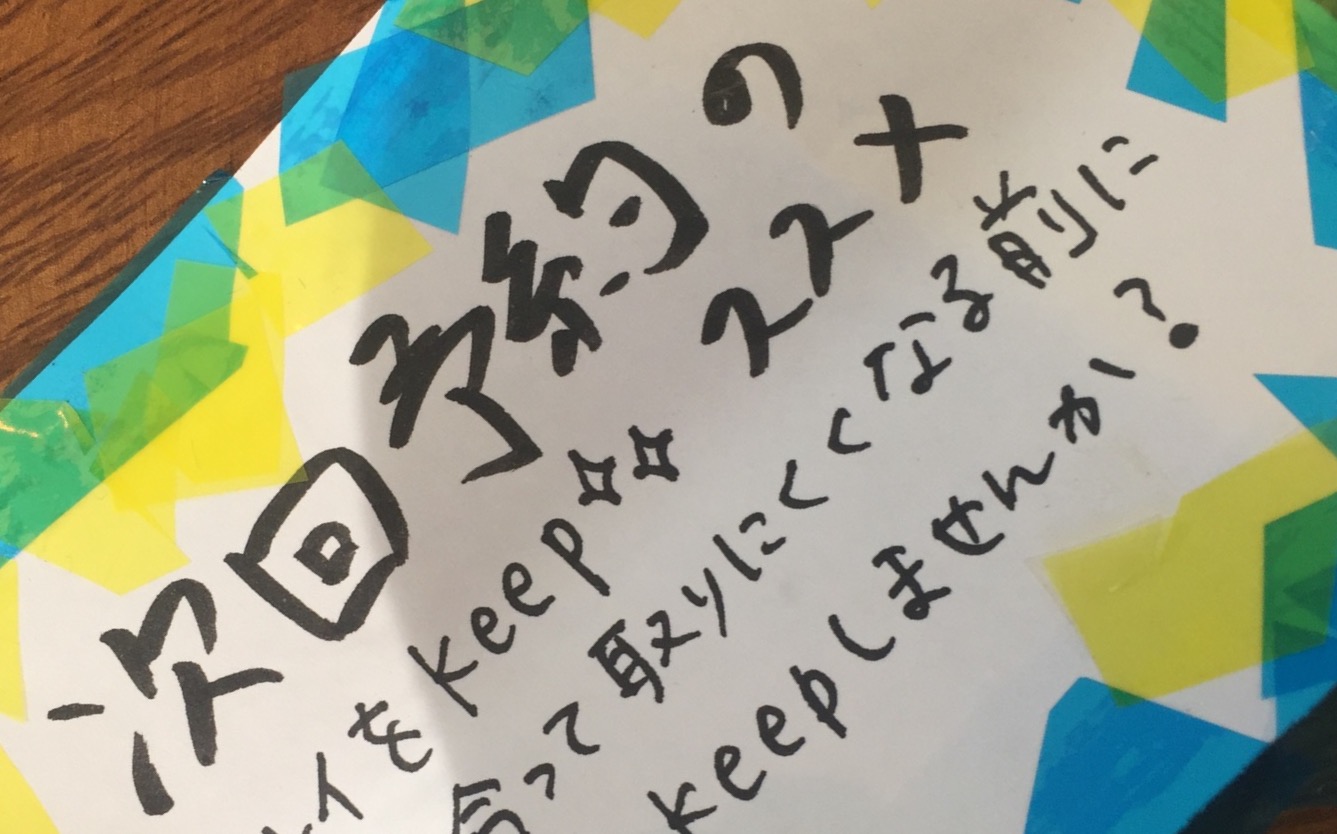 次回予約の
ススメ
イをkeep
って取りにくくなる前に
keepしませんか?